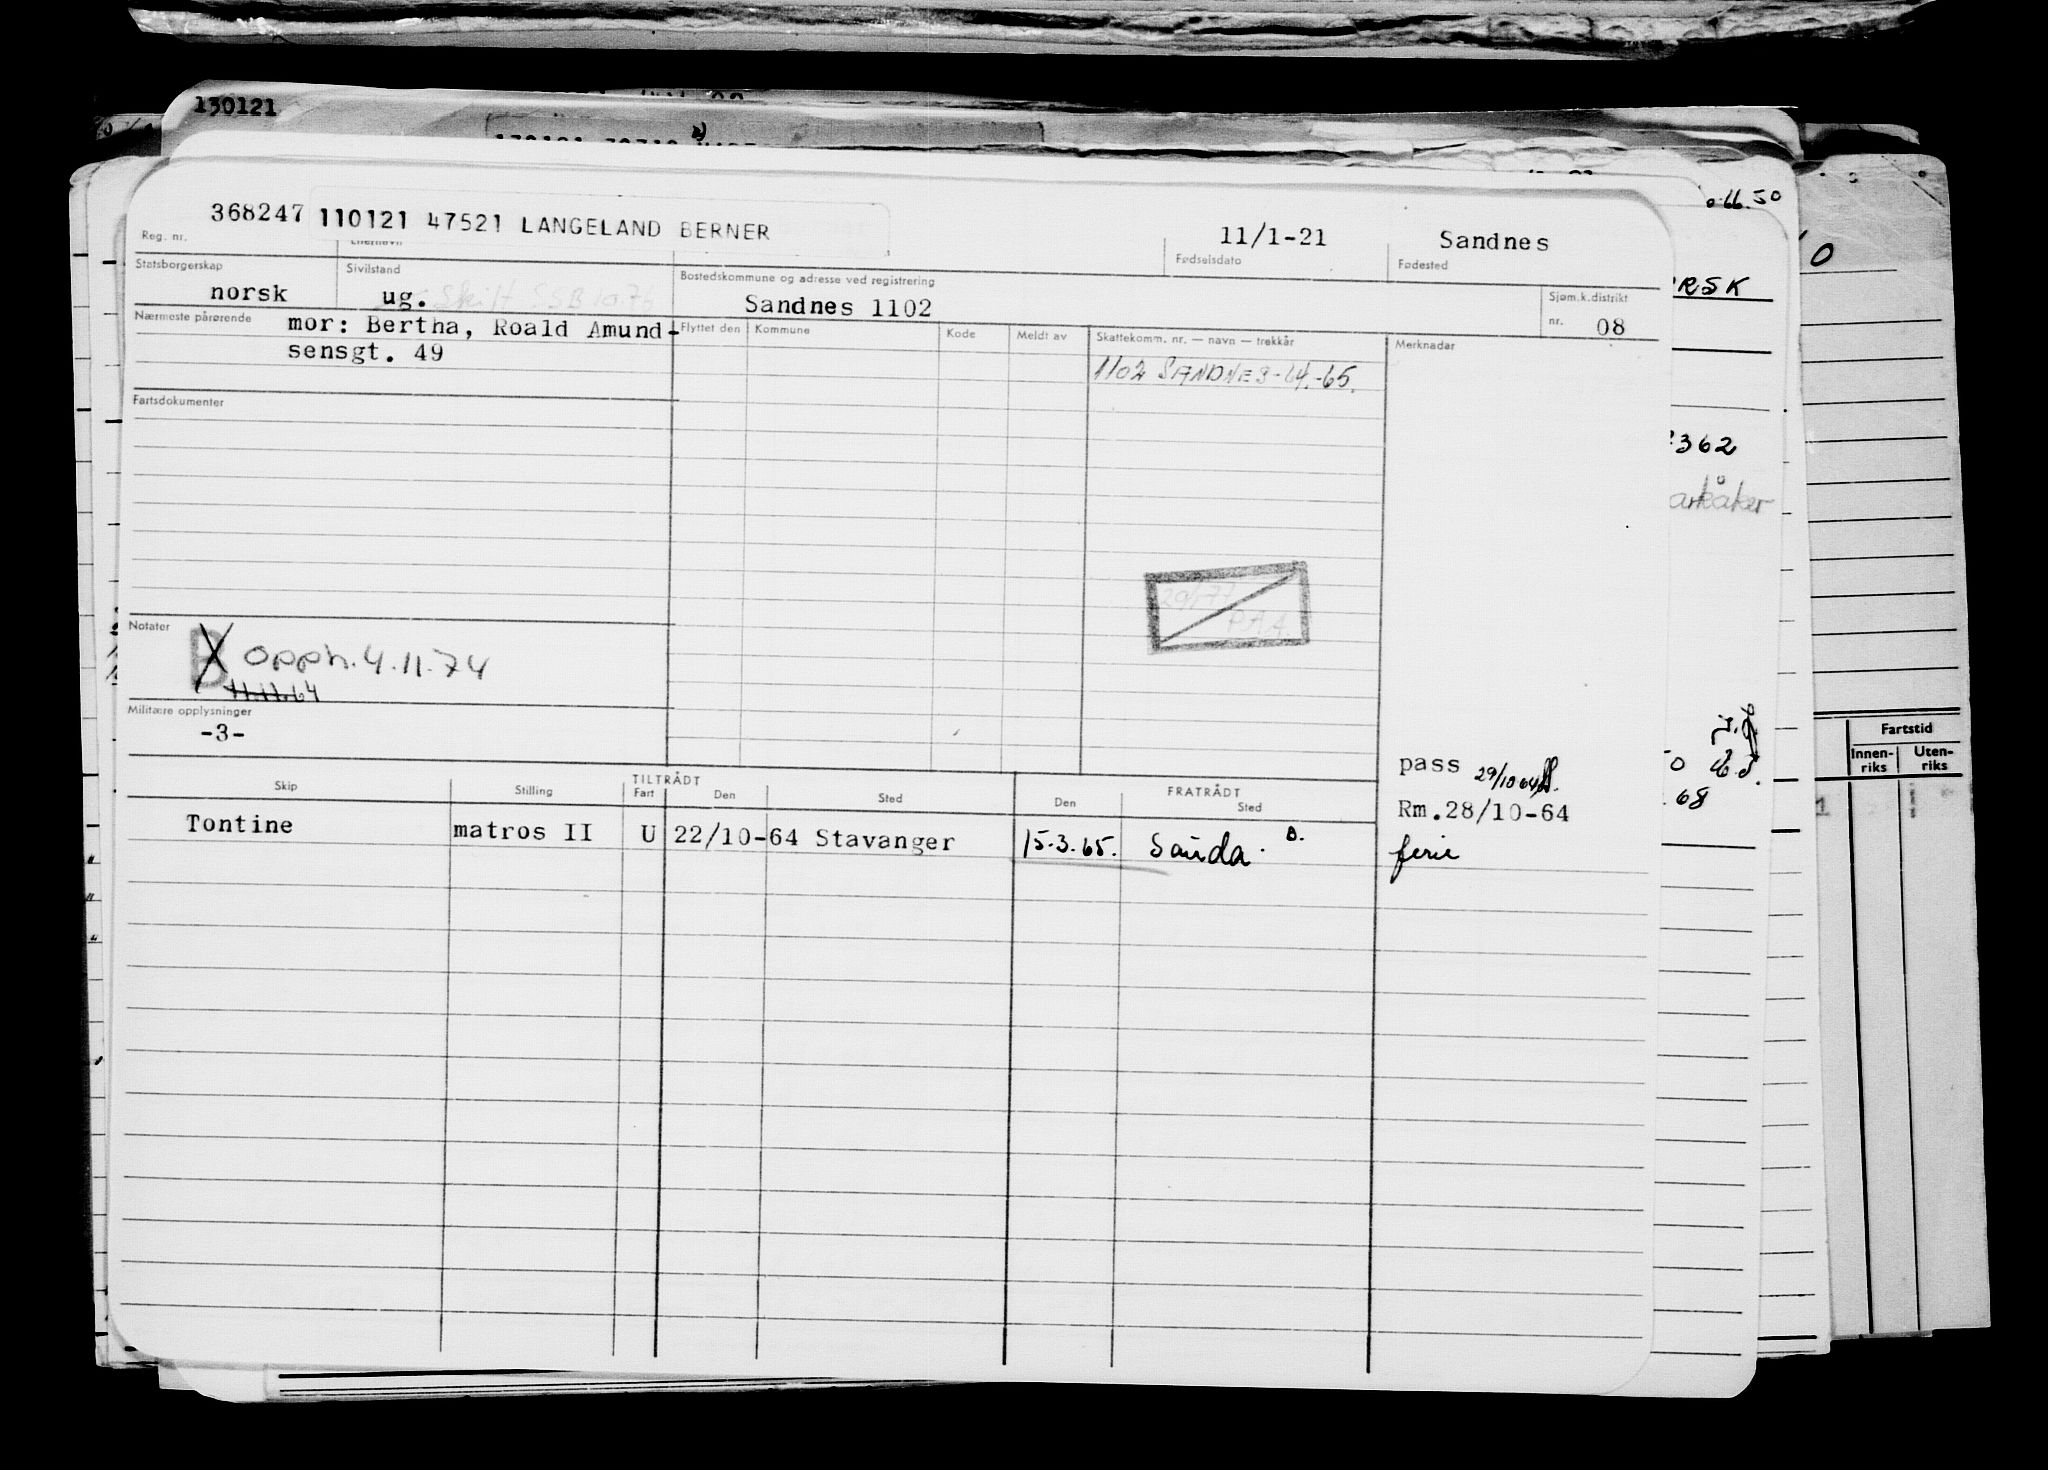 130121
368247 110121 47521 LANGELAND BERNER 11/1-21 Sandnes
Reg. nr. Fødselsdato Fødested
Statsborgerskap Sivilstand Bostedskommune og adresse ved registrering Sjøm.k.distrikt
norsk ug. Skilt SSB 10.76 Sandnes 1102 nr. 08
Nærmeste pårørende mor: Bertha, Roald Amund-
sensgt. 49
Flyttet den Kommune Kode Meldt av Skattekomm. nr. — navn — trekkår Merknader
1102 SANDNES-64.-65.
Fartsdokumenter
PAA
Notater
B opph. 4.11.74
11.11.64
Militære opplysninger
-3-
pass 29/10 64
TILTRÅDT FRATRÅDT
Skip Stilling Fart Den Sted Den Sted
Rm.28/10-64
Tontine matros II U 22/10-64 Stavanger 15.3.65. Sauda. ferie
66.50
RSK
362
arkåker
68
Fartstid
Innen-riks Uten-riks